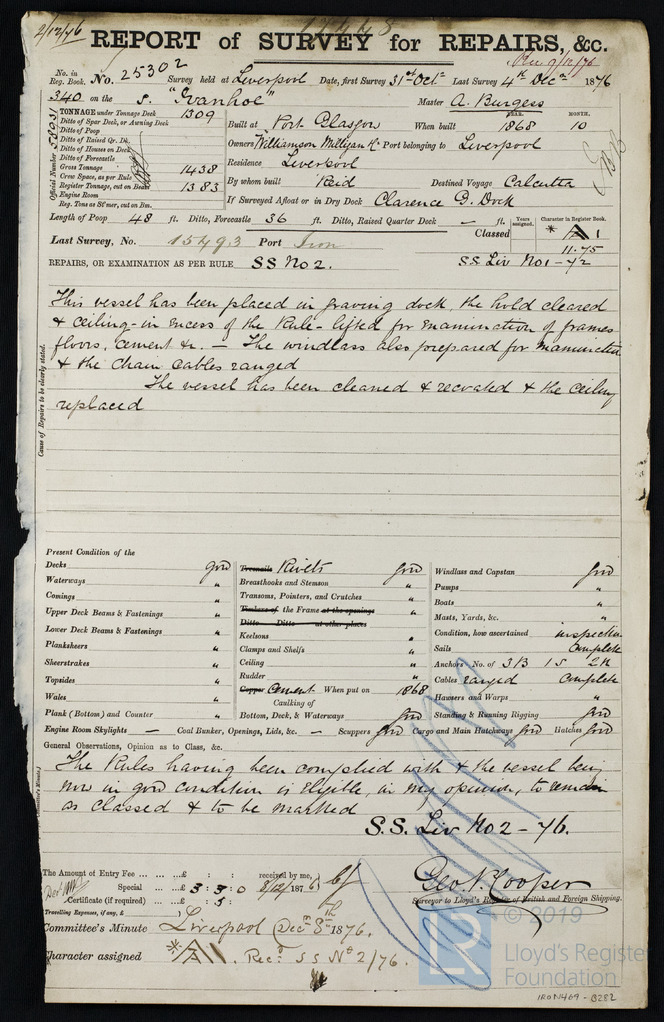 2/12/76
REPORT of SURVEY for REPAIRS, &c.
Rec. 9/12/76
No. in Reg. Book. No. 25302 Survey held at Liverpool Date, first Survey 31st Octr Last Survey 4th Decr 1876
340 on the S. "Ivanhoe" Master A. Burgess
TONNAGE under Tonnage Deck 1309
Ditto of Spar Deck, or Awning Deck
Ditto of Poop
Ditto of Raised Qr. Dk.
Ditto of Houses on Deck
Ditto of Forecastle
Gross Tonnage 1438
Crew Space, as per Rule
Register Tonnage, cut on Beam 1383
Engine Room
Reg. Tons as St'mer, cut on Bm.
Official Number
YEAR. MONTH.
Built at Port Glasgow When built 1868 10
Owners Williamson Milligan & Co Port belonging to Liverpool
Residence Liverpool
By whom built Reid Destined Voyage Calcutta
If Surveyed Afloat or in Dry Dock Clarence G. Dock
Length of Poop 48 ft. Ditto, Forecastle 36 ft. Ditto, Raised Quarter Deck — ft.
Years assigned. Character in Register Book.
Classed * A 1
11-75
Last Survey, No. 15493 Port Iron
REPAIRS, OR EXAMINATION AS PER RULE SS No 2. SS Liv No 1-72
Cause of Repairs to be clearly stated.
This vessel has been placed in graving dock, the hold cleared
& ceiling - in excess of the Rule - lifted for examination of frames
floors, cement &c. — The windlass also prepared for examination
& the chain cables ranged
The vessel has been cleaned & recoated & the ceiling
replaced
Present Condition of the
Decks good
Waterways "
Comings "
Upper Deck Beams & Fastenings "
Lower Deck Beams & Fastenings "
Planksheers "
Sheerstrakes "
Topsides "
Wales "
Plank (Bottom) and Counter "
Treenails Rivets good
Breasthooks and Stemson "
Transoms, Pointers, and Crutches "
Timbers of the Frame at the openings "
Ditto Ditto at other places
Keelsons "
Clamps and Shelfs "
Ceiling "
Rudder "
Copper Cement When put on 1868
Caulking of
Bottom, Deck, & Waterways good
Windlass and Capstan good
Pumps "
Boats "
Masts, Yards, &c. "
Condition, how ascertained inspection
Sails Complete
Anchors No. of 3 B 1 S 2 K
Cables ranged Complete
Hawsers and Warps "
Standing & Running Rigging good
Engine Room Skylights — Coal Bunker, Openings, Lids, &c. — Scuppers good Cargo and Main Hatchways good Hatches good
General Observations, Opinion as to Class, &c.
The Rules having been complied with & the vessel being
now in good condition is eligible, in my opinion, to remain
as classed & to be marked
S.S. Liv No 2 - 76.
The Amount of Entry Fee ... ... £ : : received by me,
Special ... ... £ 3 : 3 : 0 8/12/1876
Certificate (if required) ... £ : 5
Travelling Expenses, if any, £
Geo. N. Cooper
Surveyor to Lloyd's Register of British and Foreign Shipping.
Committee's Minute Liverpool Decr 8th 1876.
Character assigned * A 1. Recd SS No 2/76.
© 2019
LR
Lloyd's Register
Foundation
IRON469-B282